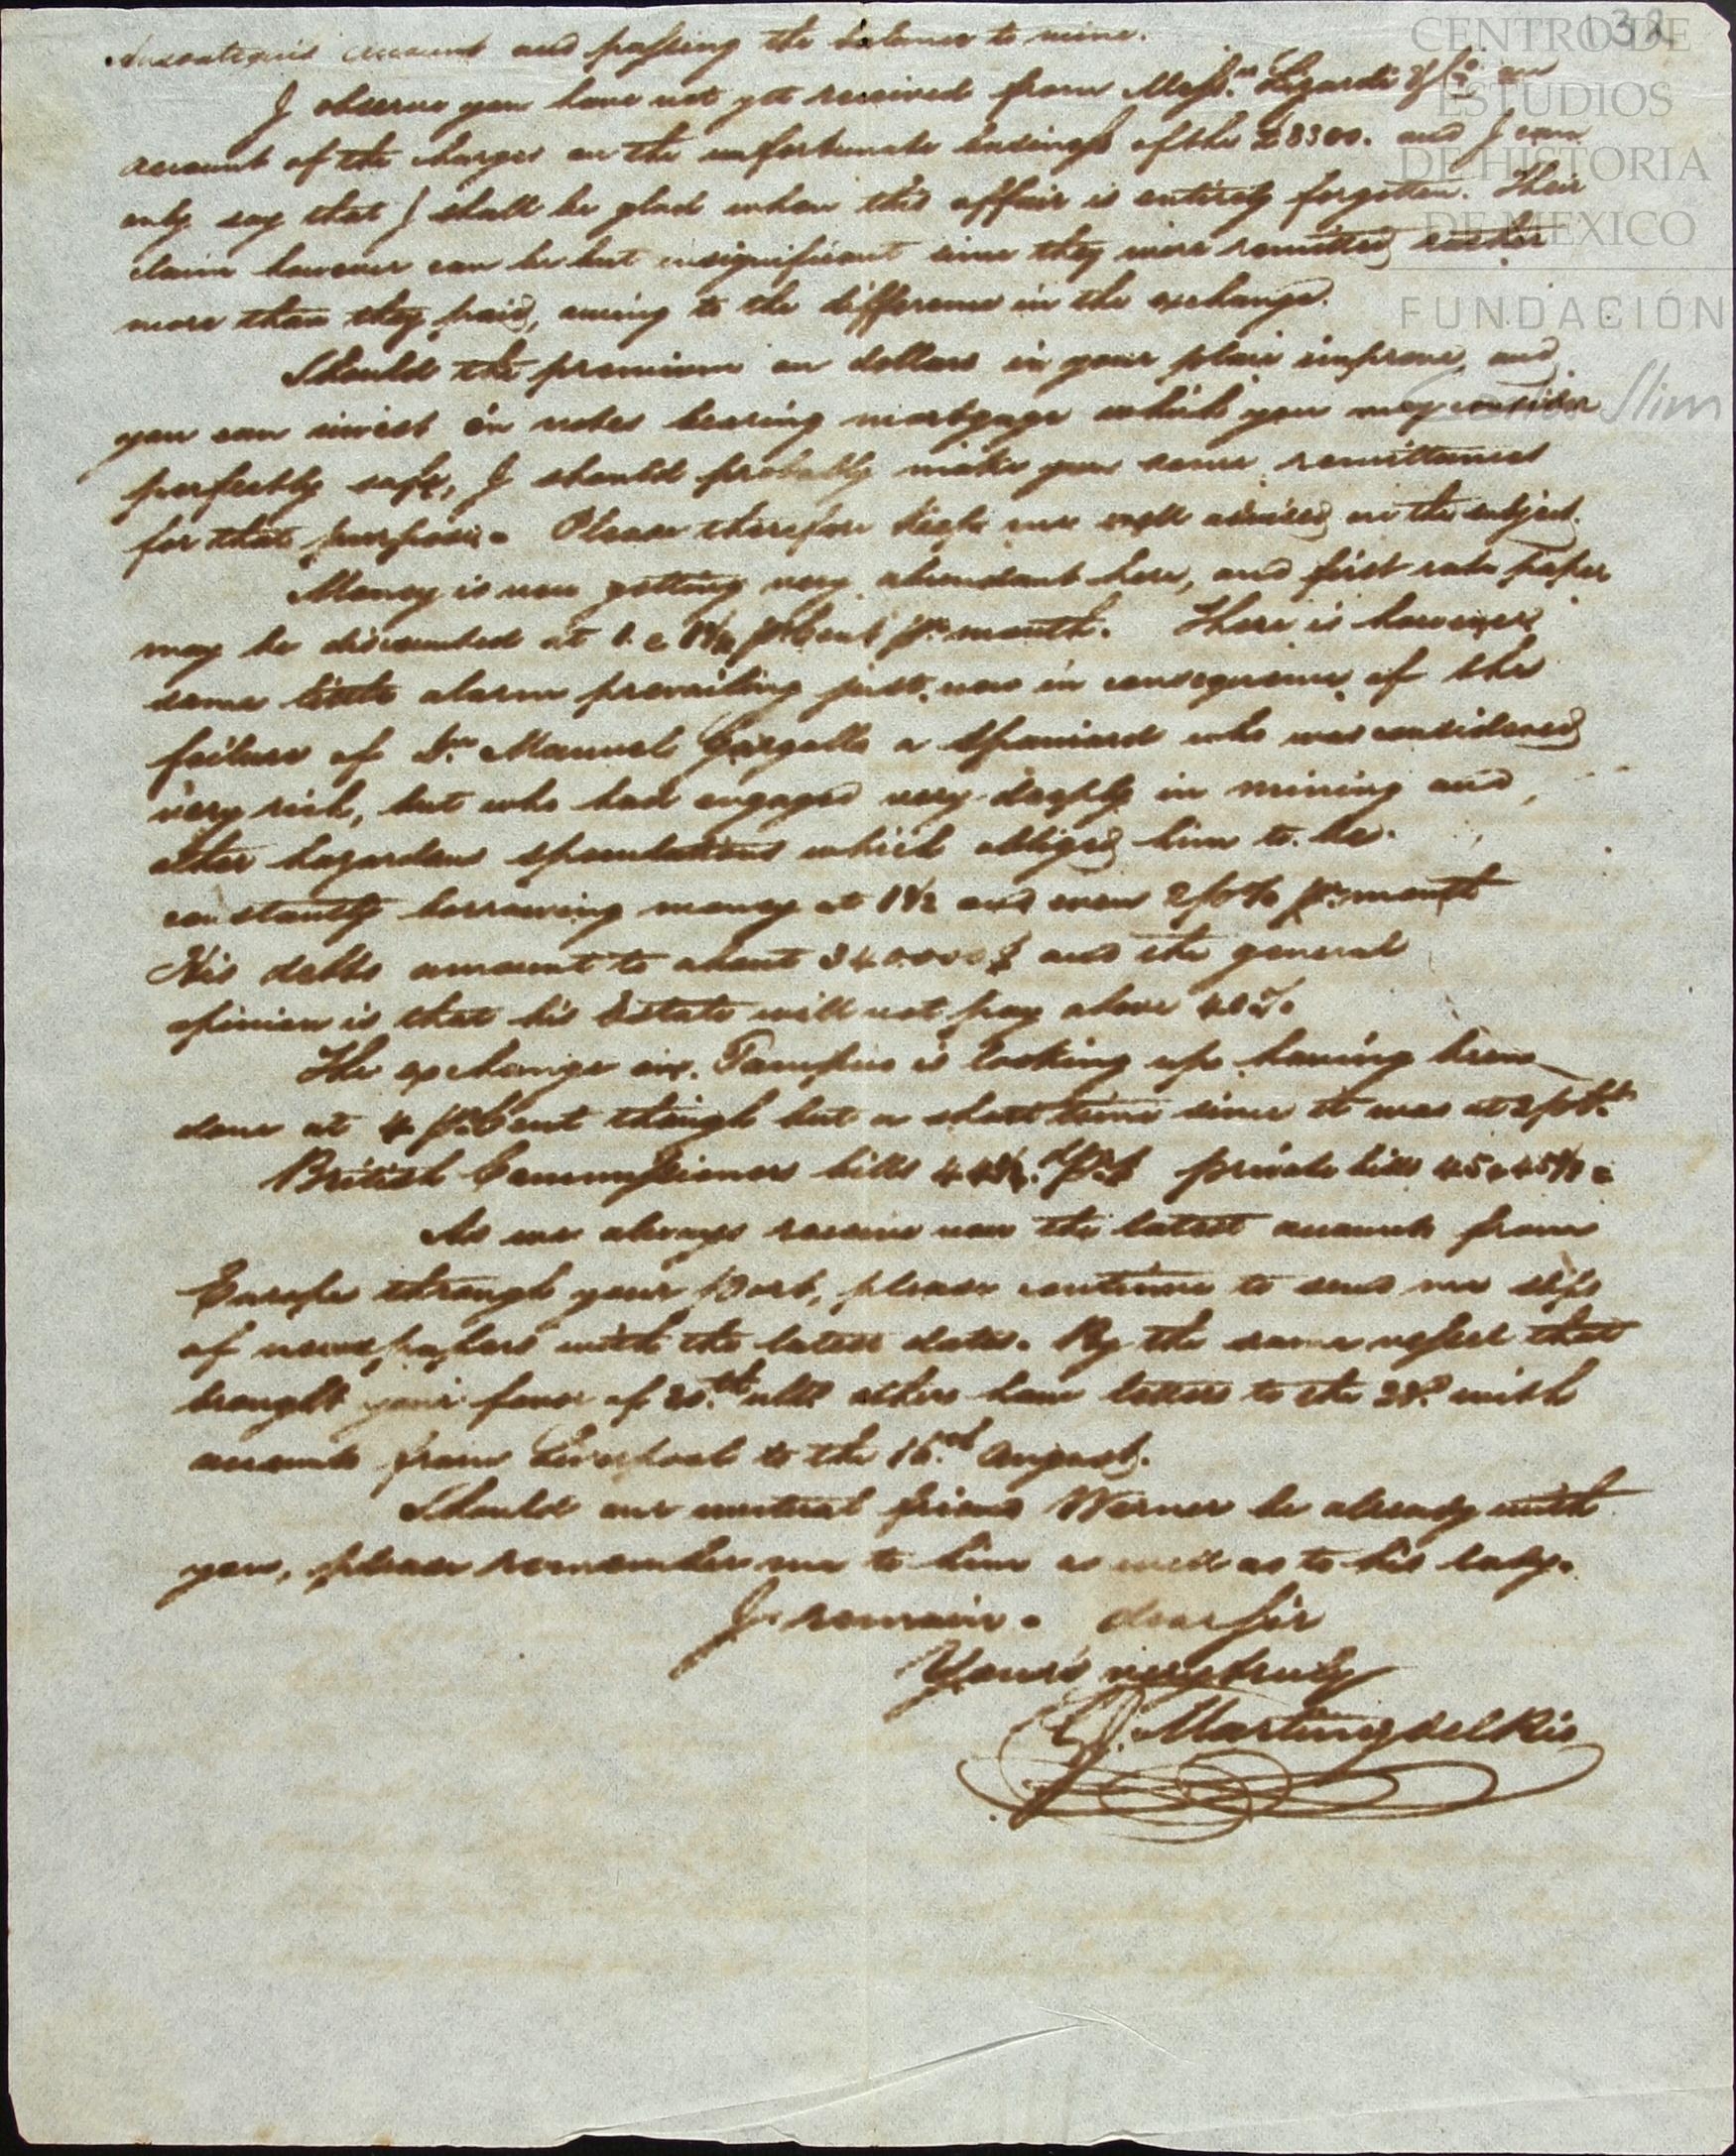 132
CENTRO DE
ESTUDIOS
DE HISTORIA
DE MEXICO
FUNDACIÓN
Carlos Slim
account and passing the balance to mine.
I observe you have not yet received from Mess.rs Lizardi & Co. an
account of the charges on the unfortunate business of the £8300. and I can
only say that I shall be glad when this affair is entirely forgotten. Their
claim however can be but insignificant since they were remitted rather
more than they paid, owing to the difference in the exchange.
Should the premium on dollars in your place improve, and
you can invest in notes bearing mortgage which you may consider
perfectly safe, I should probably make you some remittances
for that purpose. Please therefore keep me well advised on the subject.
Money is now getting very abundant here, and first rate paper
may be discounted at 1 a 1¼ p.Cent p.r month. There is however
some little alarm prevailing just now in consequence of the
failure of D.n Manuel Gargollo a Spaniard who was considered
very rich, but who had engaged very deeply in mining and
other hazardous speculations which obliged him to be
constantly borrowing money at 1½ and even 2 p% p.r month
His debts amount to about 340.000$ and the general
opinion is that his Estate will not pay above 40%.
The exchange on Tampico is looking up having been
done at 4 p.Cent though but a short time since it was at 2 p.Ct.
British Commissioners bills private bills 45 a 45½
As we always receive now the latest accounts from
Europe through your Port, please continue to send me slips
of newspapers with the latest dates. By the same vessel that
brought your favor of 20.th ulto others have letters to the 23.d with
accounts from Liverpool to the 16.th August.
Should our mutual friend Werner be already with
you, please remember me to him as well as to his lady.
I remain. dear Sir
Yours very truly
P. Martinez del Rio